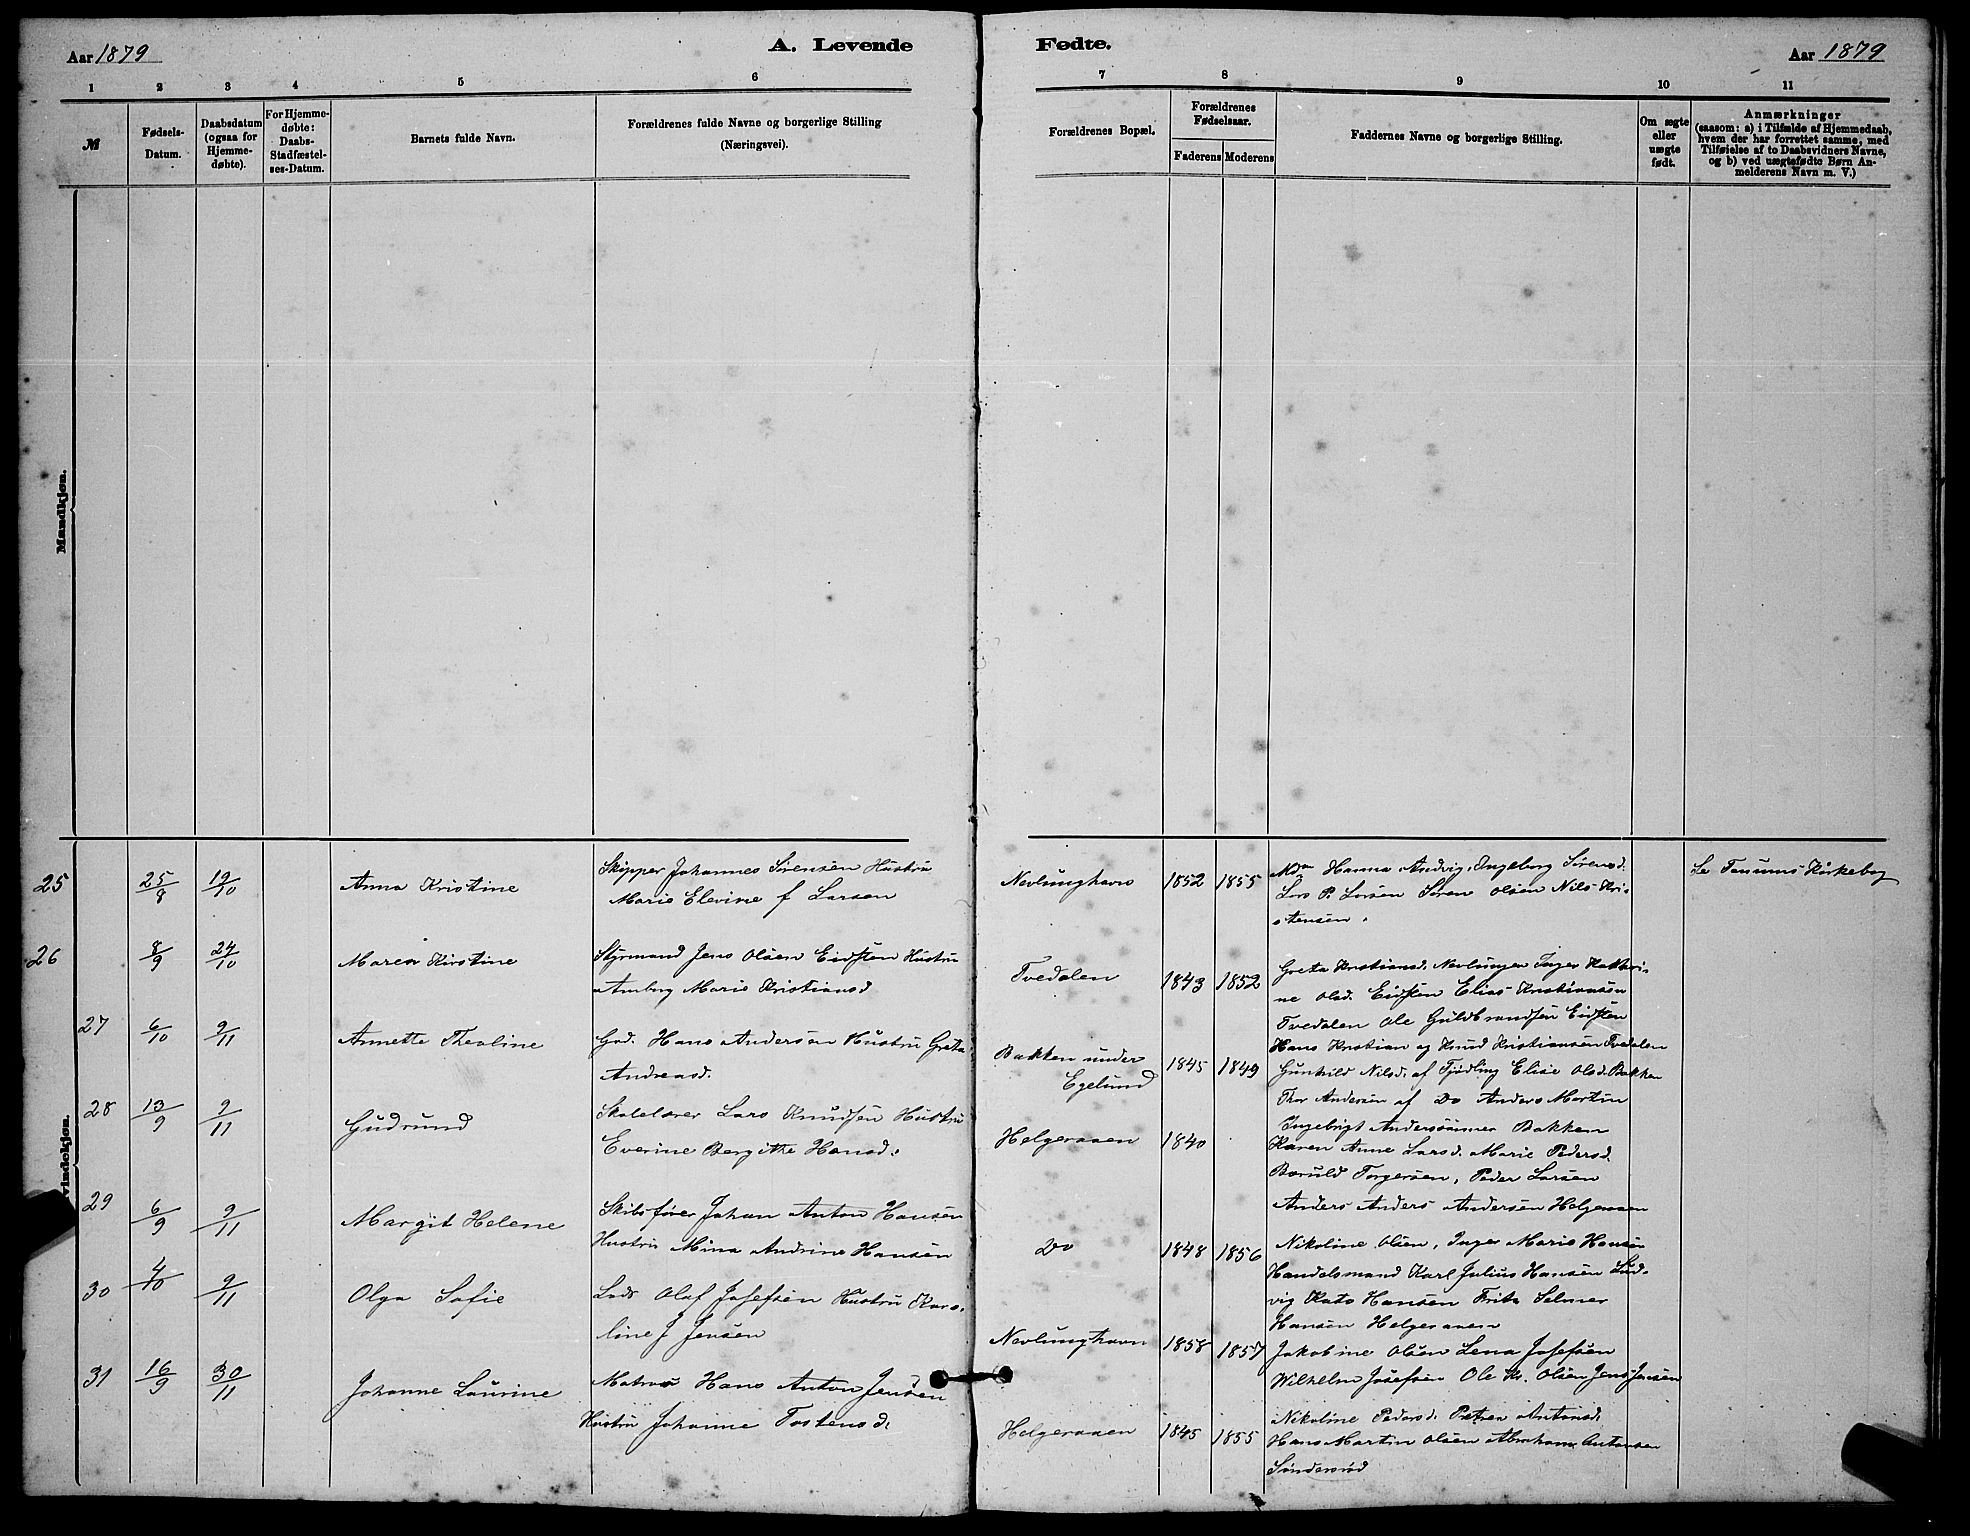 Aar 1879
A. Levende
Fødte.
Aar 1879
1 2 3 4 5 6 7 8 9 10 11
№
Fødsels-
Datum.
Daabsdatum
(ogsaa for
Hjemme-
døbte).
For Hjemme-
døbte:
Daabs-
Stadfæstel-
ses-Datum.
Barnets fulde Navn.
Forældrenes fulde Navne og borgerlige Stilling
(Næringsvei).
Forældrenes Bopæl.
Forældrenes
Fødselsaar.
Faderens Moderens
Faddernes Navne og borgerlige Stilling.
Om ægte
eller
uægte
født.
Anmærkninger
(saasom: a) i Tilfælde af Hjemmedaab,
hvem der har forrettet samme, med
Tilføielse af to Daabsvidners Navne,
og b) ved uægtefødte Børn An-
melderens Navn m. V.)
Mandkjøn.
Kvindekjøn.
25 25/8 19/10 Anna Kristine
Skipper Johannes Sørensen Hustru
Marie Elevine f Larsen
Nevlunghavn 1852 1855
Hanna Andvig, Ingeborg Sørensd.
Lars P. Larsen Søren Olsen Nils Kri-
stensen.
Se Tanums Kirkebog
26 8/9 24/10 Maren Kirstine
Styrmand Jens Olsen Eidsten Hustru
Amborg Marie Kristiansd
Tvedalen 1843 1852
Greta Kristiansd. Nevlungen Inger Kathri-
ne Olsd. Eidsten Elias Kristiansen
Tvedalen Ole Guldbrandsen Eidsten
Hans Kristian og Knud Kristiansen Tvedalen
27 6/10 9/11 Annette Theoline
Gbd. Hans Andersen Hustru Greta
Andreasd.
Bakken under
Egelund 1845 1849
Gunhild Nilsd. af Tjødling Elise Olsd. Bakken
Thor Andersen af Do Anders Martin
Ingebrigt Anderssønner Bakken
28 13/9 9/11 Gudrund
Skolelærer Lars Knudsen Hustru
Everine Bergitte Hansd.
Helgeraaen 1840
Karen Anne Larsd. Marie Pedersd.
Baruld Torgersen, Peder Larsen
Anders Anders Andersen Helgeraaen
29 6/9 9/11 Margit Helene
Skibsfører Johan Anton Hansen
Hustru Mina Andrine Hansen
Do 1848 1856
Nikoline Olsen, Inger Marie Hansen
Handelsmand Karl Julius Hansen Lud-
vig Kato Hansen Frits Selmer
Hansen Helgeraaen
30 4/10 9/11 Olga Sofie
Lods Olaf Josefsen Hustru Karo-
line J Jensen
Nevlunghavn 1858 1857
Jakobine Olsen Lena Josefsen
Wilhelm Josefsen Ole Kr. Olsen Jens Jensen
31 16/9 30/11 Johanne Laurine
Matros Hans Anton Jensen
Hustru Johanne Tostensd.
Helgeraaen 1845 1855
Nikoline Pedersd. Petrea Antonsd.
Hans Martin Olsen Abraham Antonsen
Søndersrød